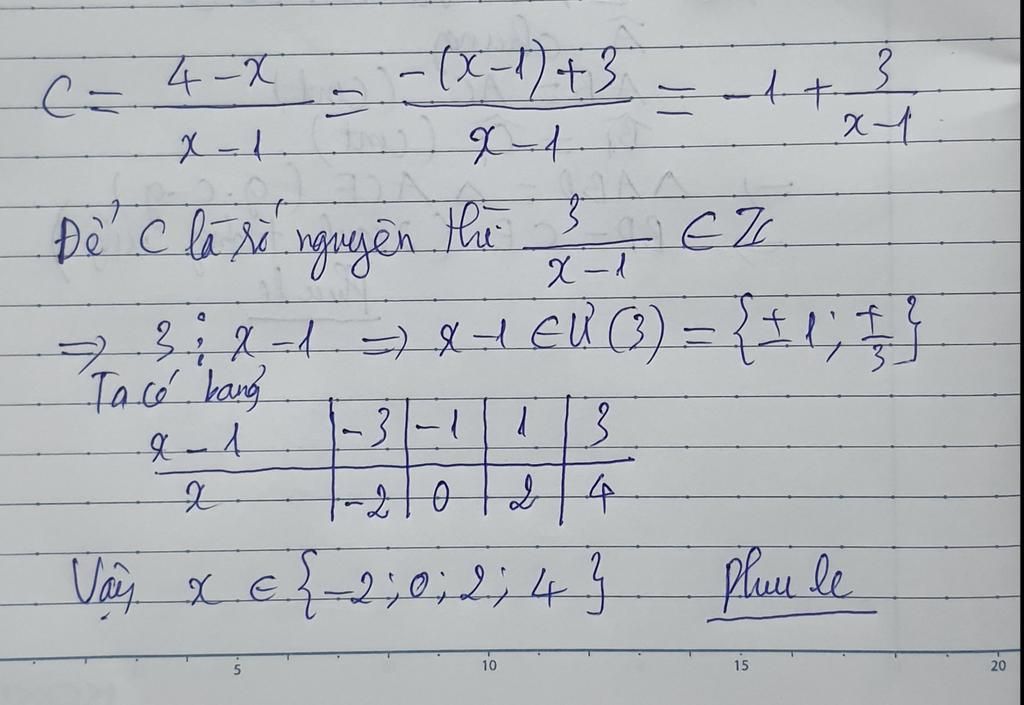 C = \frac{4-x}{x-1} = \frac{-(x-1)+3}{x-1} = -1 + \frac{3}{x-1}
Để C là số nguyên thì \frac{3}{x-1} ∈ Z
⇒ 3 ⋮ x-1 ⇒ x-1 ∈ Ư(3) = {±1; ±3}
Ta có bảng
x-1 | -3 | -1 | 1 | 3
x | -2 | 0 | 2 | 4
Vậy x ∈ {-2; 0; 2; 4} Phuu le
5 10 15 20